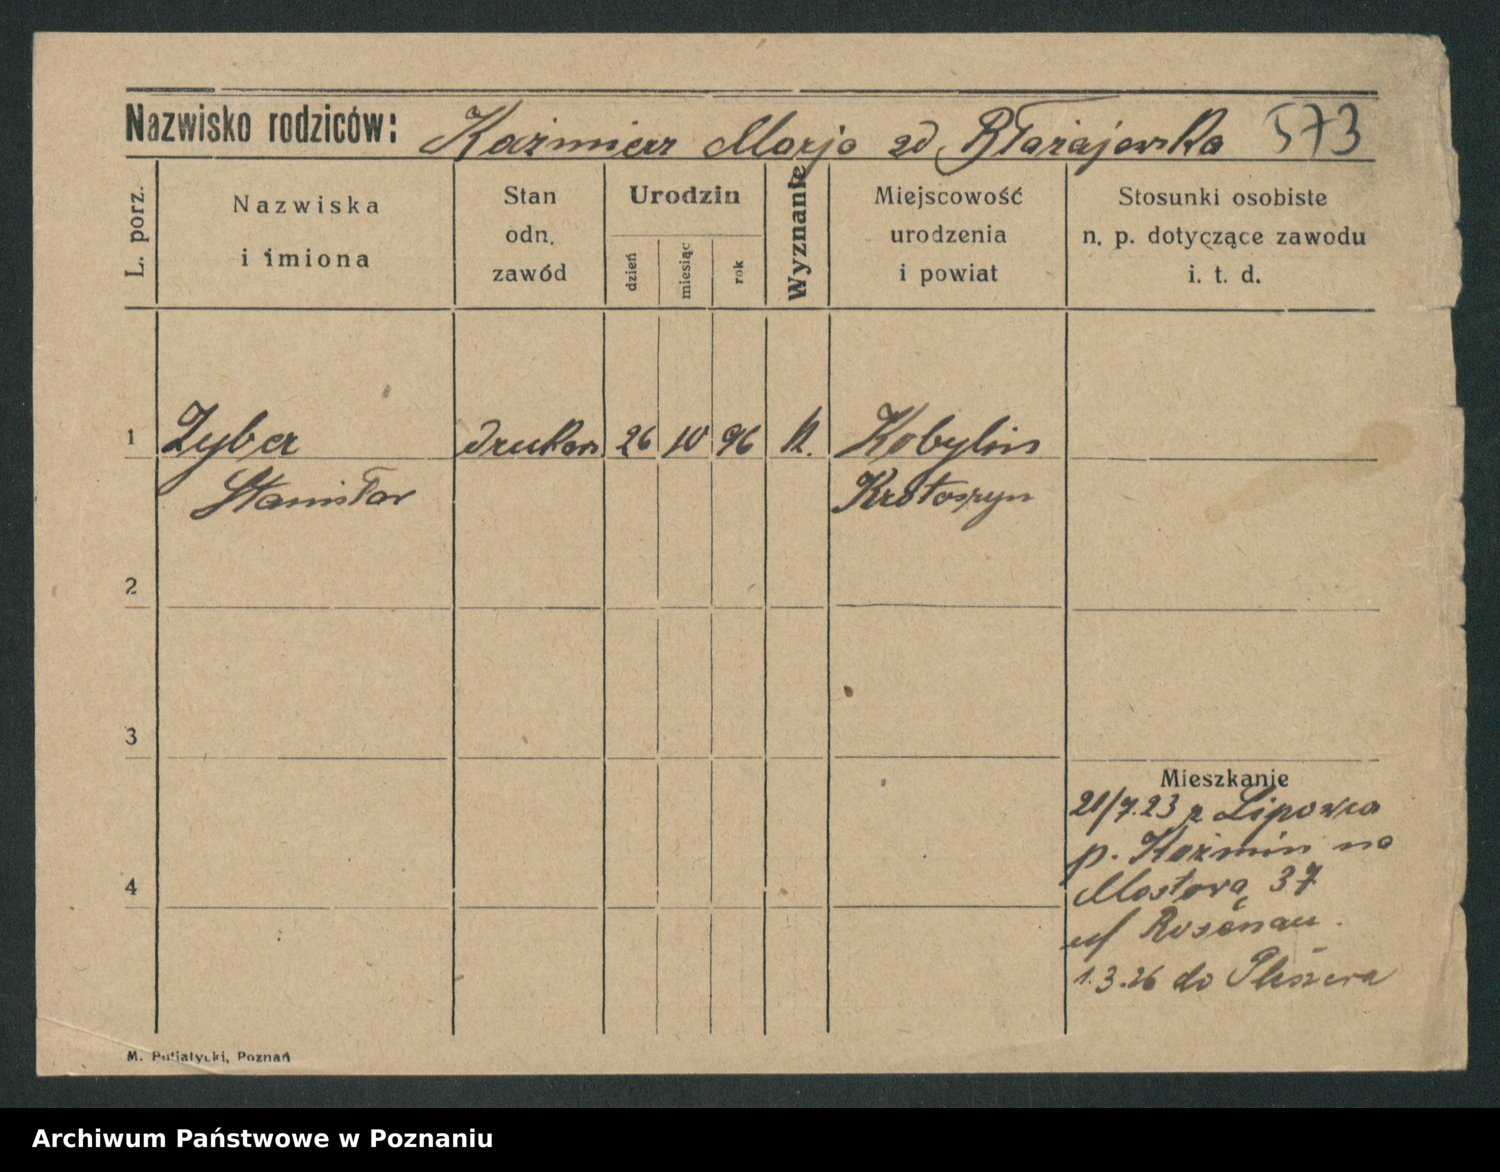 Nazwisko rodziców: Kazimierz Marja zd Błażajewska 573
L. porz.
Nazwiska
i imiona
Stan
odn.
zawód
Urodzin
dzień
miesiąc
rok
Wyznanie
Miejscowość
urodzenia
i powiat
Stosunki osobiste
n. p. dotyczące zawodu
i. t. d.
1 Zyber drukarz 26 10 96 k. Kobylin
Stanisław Krotoszyn
2
3
Mieszkanie
21/7.23 z Lipowca
p. Koźmin na
4 Mostową 37
Rosenau.
1.3.26 do Pleszewa
M. Putiatycki, Poznań
Archiwum Państwowe w Poznaniu